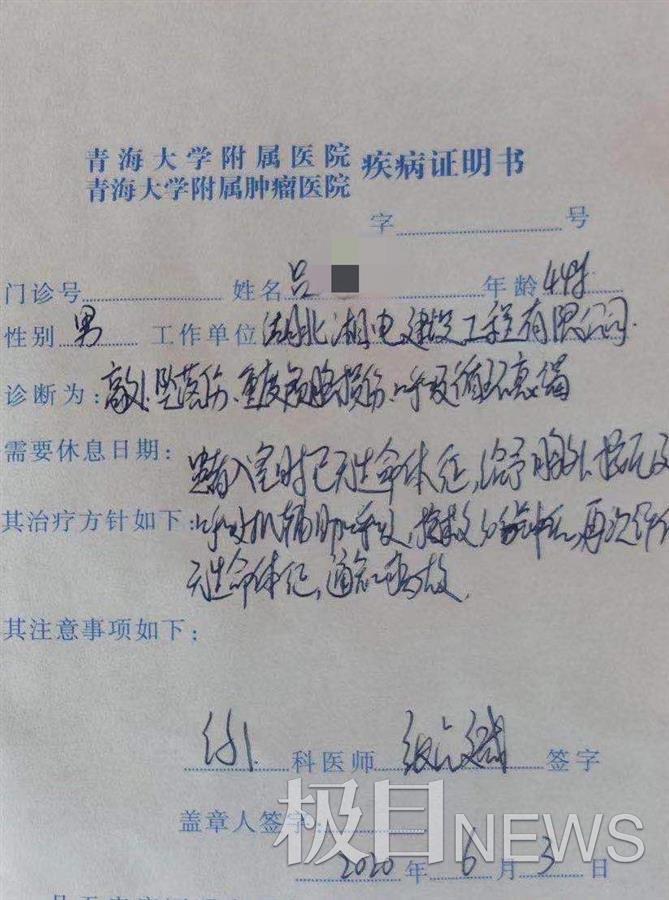 青海大学附属医院
青海大学附属肿瘤医院 疾病证明书
字 号
门诊号 姓名 吕 年龄 44岁
性别 男 工作单位 湖北湘电建设工程有限公司
诊断为:高处坠落伤、重度颅脑损伤、呼吸循环衰竭
需要休息日期: 患者入室时已无生命体征,给予胸外按压及
其治疗方针如下:呼吸机辅助呼吸,抢救 分钟后,再次评估
无生命体征,通知 故
其注意事项如下:
科医师 签字
盖章人签字:
2020年 6月 3日
极目NEWS